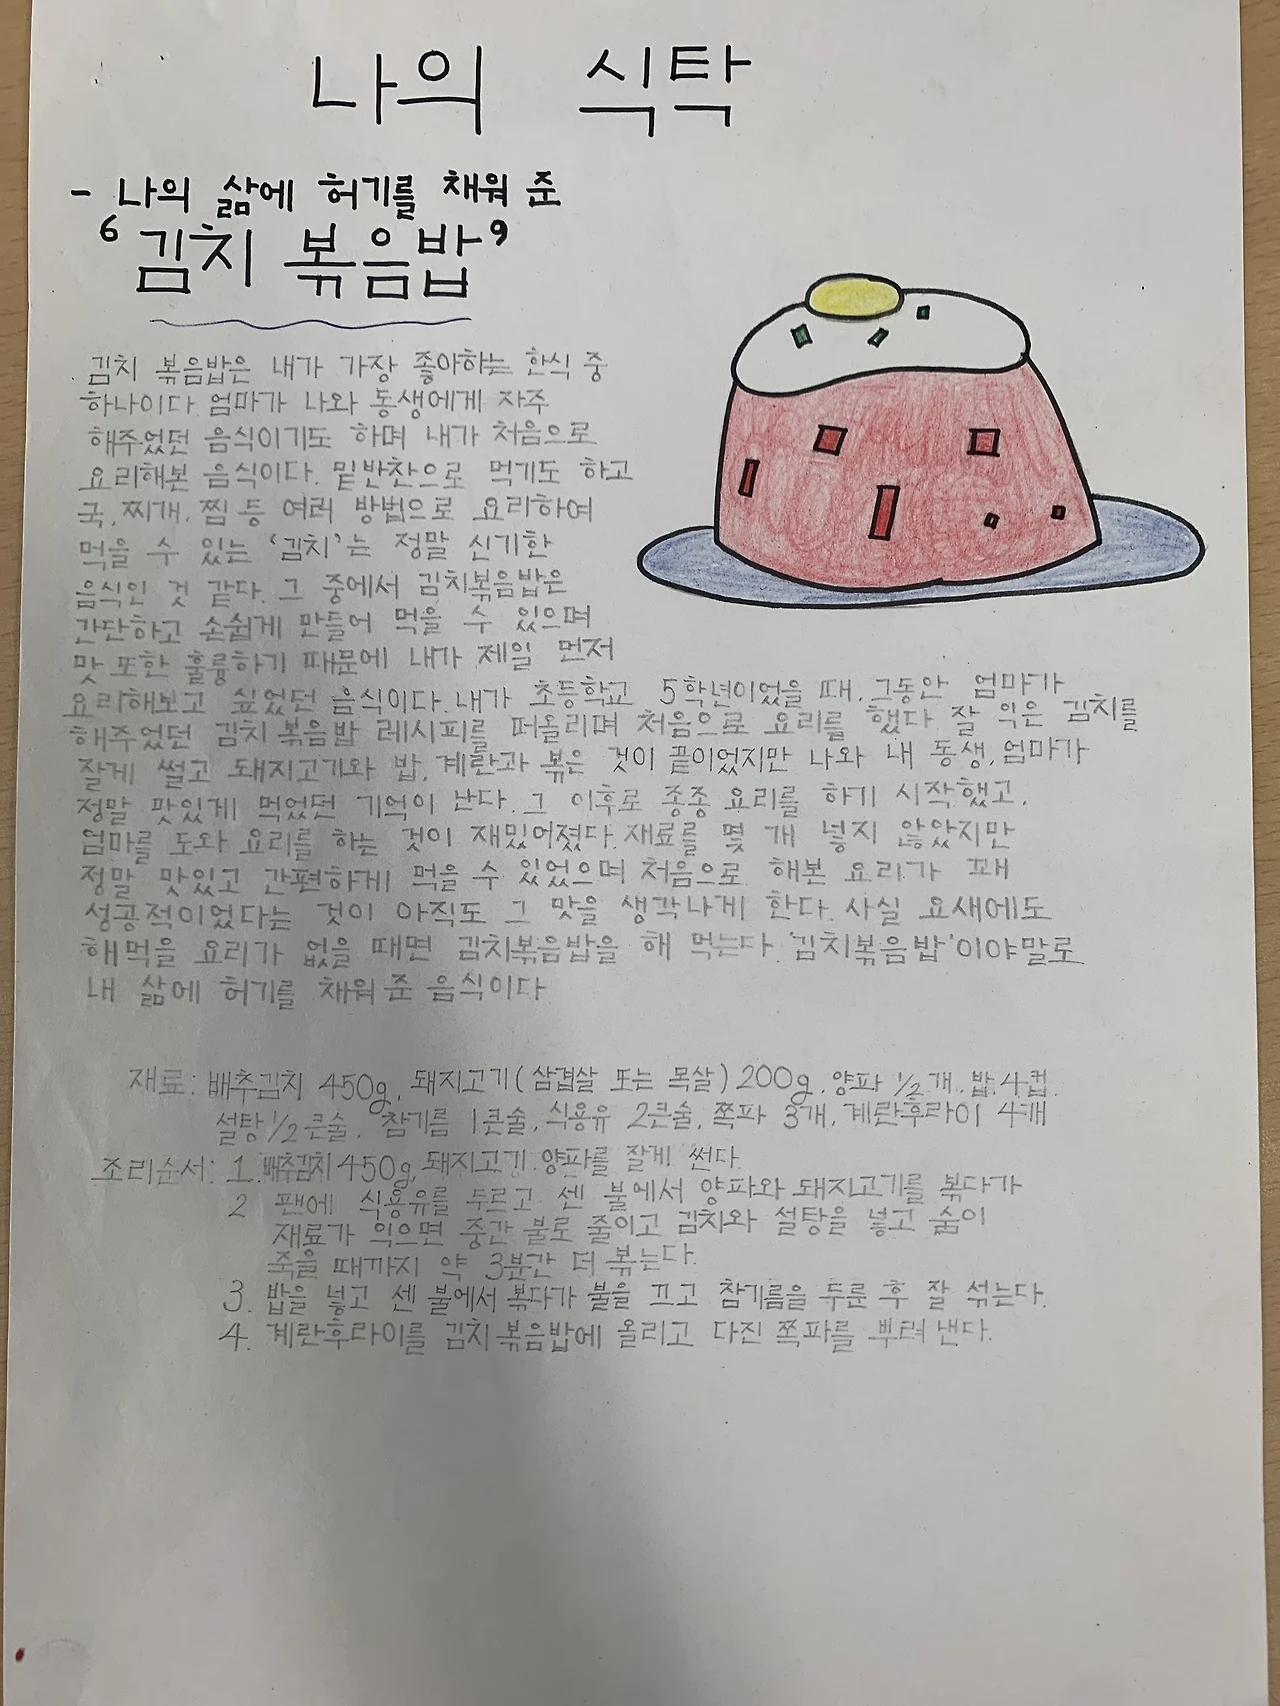 나의 식탁
- 나의 삶에 허기를 채워 준
'김치 볶음밥'
김치 볶음밥은 내가 가장 좋아하는 한식 중
하나이다. 엄마가 나와 동생에게 자주
해주었던 음식이기도 하며 내가 처음으로
요리해본 음식이다. 밑반찬으로 먹기도 하고
국, 찌개, 찜 등 여러 방법으로 요리하여
먹을 수 있는 '김치'는 정말 신기한
음식인 것 같다. 그 중에서 김치볶음밥은
간단하고 손쉽게 만들어 먹을 수 있으며
맛 또한 훌륭하기 때문에 내가 제일 먼저
요리해보고 싶었던 음식이다. 내가 초등학교 5학년이었을 때, 그동안 엄마가
해주었던 김치 볶음밥 레시피를 떠올리며 처음으로 요리를 했다. 잘 익은 김치를
잘게 썰고 돼지고기와 밥, 계란과 볶은 것이 끝이었지만 나와 내 동생, 엄마가
정말 맛있게 먹었던 기억이 난다. 그 이후로 종종 요리를 하기 시작했고,
엄마를 도와 요리를 하는 것이 재밌어졌다. 재료를 몇 개 넣지 않았지만
정말 맛있고 간편하게 먹을 수 있었으며 처음으로 해본 요리가 꽤
성공적이었다는 것이 아직도 그 맛을 생각나게 한다. 사실 요새에도
해먹을 요리가 없을 때면 김치볶음밥을 해 먹는다. '김치볶음밥'이야말로
내 삶에 허기를 채워 준 음식이다
재료: 배추김치 450g, 돼지고기(삼겹살 또는 목살) 200g, 양파 1/2개, 밥 4컵,
설탕 1/2큰술, 참기름 1큰술, 식용유 2큰술, 쪽파 3개, 계란후라이 4개
조리순서: 1. 배추김치 450g, 돼지고기, 양파를 잘게 썬다.
2 팬에 식용유를 두르고 센 불에서 양파와 돼지고기를 볶다가
재료가 익으면 중간 불로 줄이고 김치와 설탕을 넣고 숨이
죽을 때까지 약 3분간 더 볶는다.
3. 밥을 넣고 센 불에서 볶다가 불을 끄고 참기름을 두룬 후 잘 섞는다.
4. 계란후라이를 김치 볶음밥에 올리고 다진 쪽파를 뿌려 낸다.